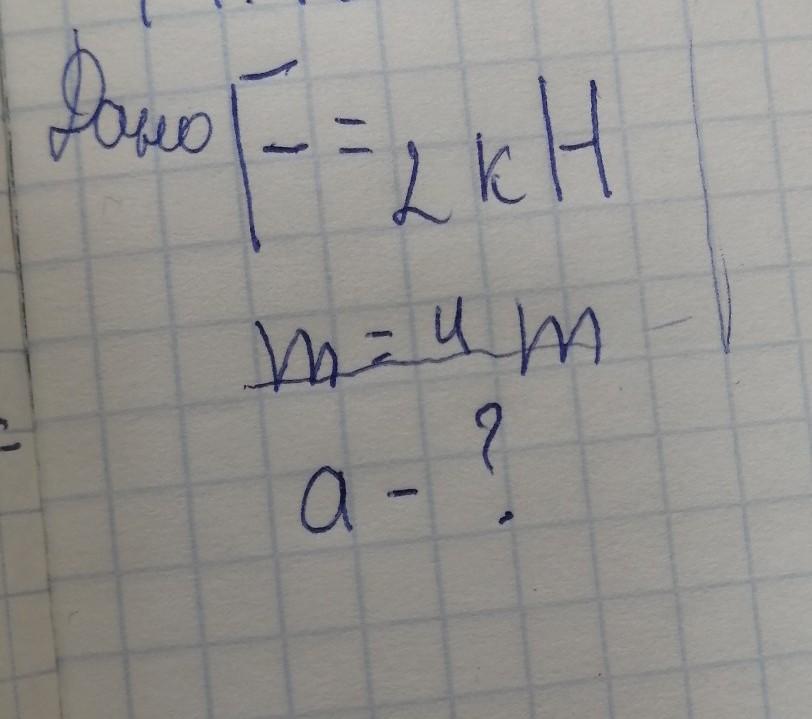 Дано F = 2 кН
m = 4 т
a - ?